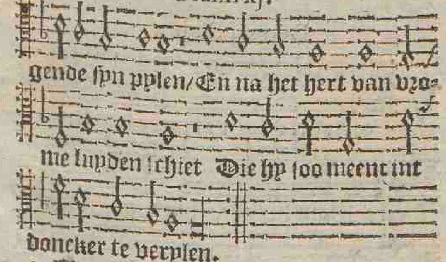 gende syn pylen/En na het hert van vro-
me luyden schiet Die hy soo meent int
doncker te verylen.